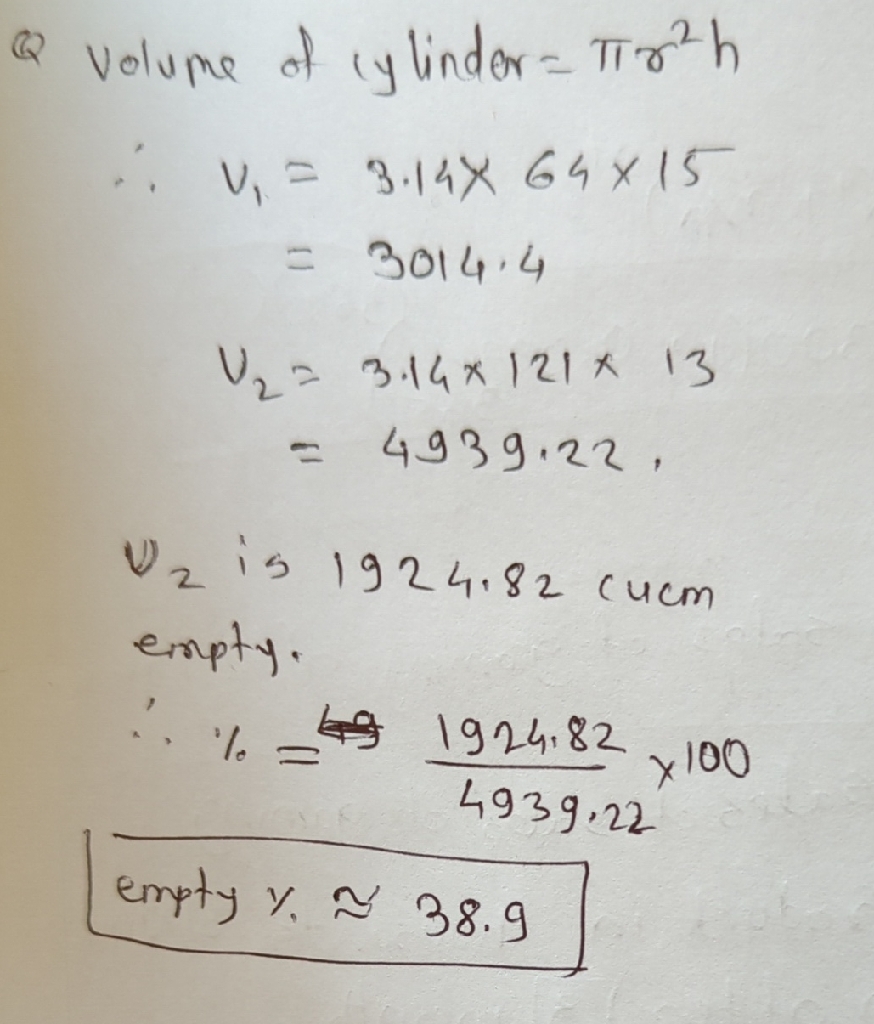 Q Volume of cylinder = πr²h
∴ V₁ = 3.14 × 64 × 15
= 3014.4
V₂ = 3.14 × 121 × 13
= 4939.22,
V₂ is 1924.82 cucm
empty.
∴ % = 1924.82 / 4939.22 × 100
empty % ≈ 38.9